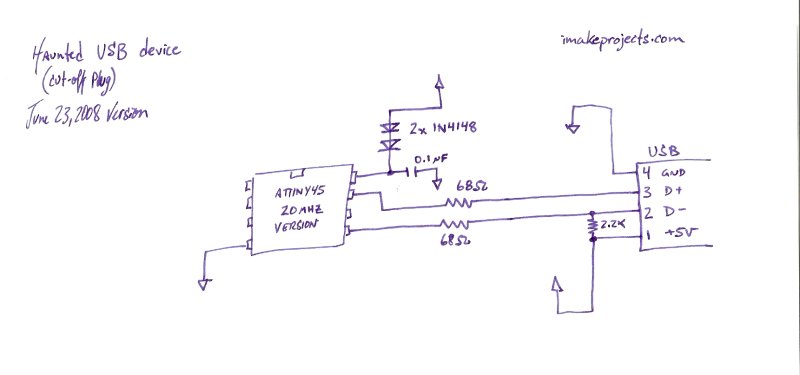 Haunted USB device
(cut-off plug)
June 23, 2008 Version
imakeprojects.com
2x 1N4148
0.1µF
ATTINY45
20MHZ
VERSION
68Ω
68Ω
2.2K
USB
4 GND
3 D+
2 D-
1 +5V